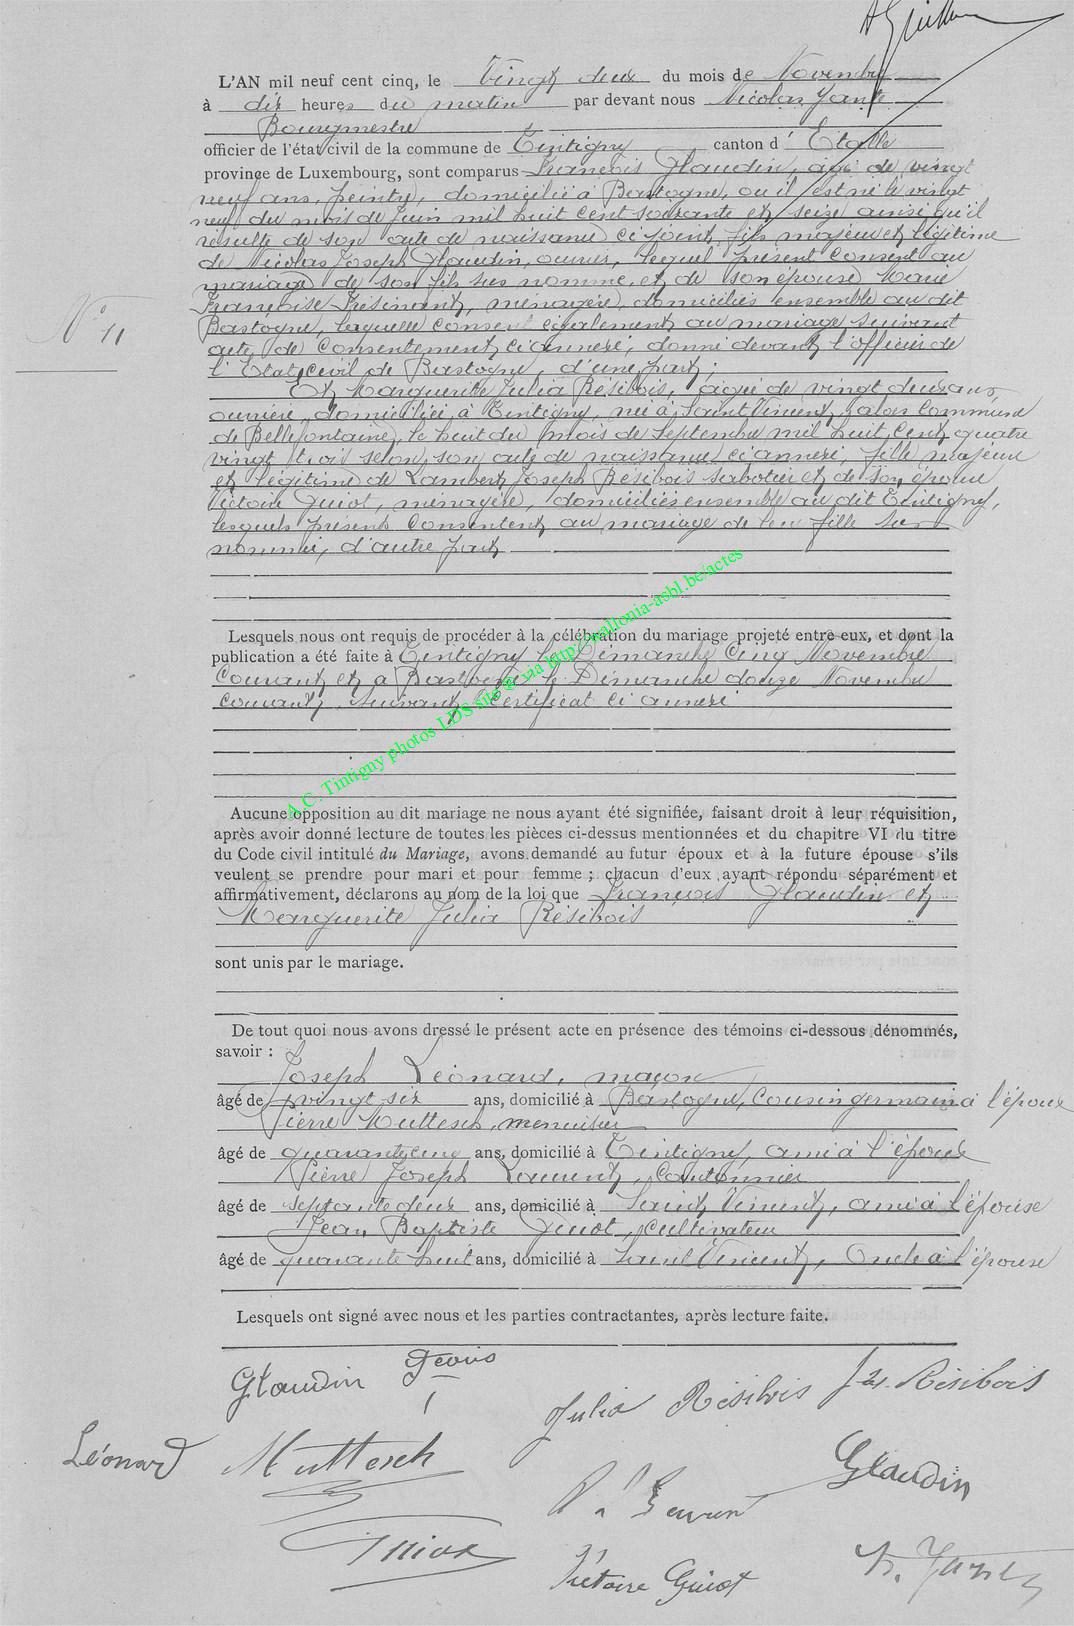 L'AN mil neuf cent cinq, le Vingt deux du mois de Novembre
à dix heures du matin par devant nous Nicolas Jante
Bourgmestre
officier de l'état civil de la commune de Tintigny canton d' Etalle
province de Luxembourg, sont comparus François Glaudin, agé de vingt
neuf ans, peintre, domicilié à Bastogne, ou il est né le vingt
neuf du mois de Juin mil huit cent soixante et seize ainsi qu'il
résulte de son acte de naissance ci joint, fils majeur et légitime
de Nicolas Joseph Glaudin, ouvrier, lequel présent consent au
mariage de son fils sus nommé, et de son épouse Marie
Françoise Frésinant, ménagère, domiciliés ensemble au dit
Bastogne, laquelle consent également au mariage suivant
acte de consentement ci annexé, donné devant l'officier de
l'Etat civil de Bastogne, d'une part;
N° 11
Et Marguerite Julia Résibois, agée de vingt deux ans,
ouvrière, domiciliée à Tintigny, née à Saint Vincent, alors commune
de Bellefontaine, le huit du mois de Septembre mil huit cent quatre
vingt trois selon son acte de naissance ci annexé, fille majeure
et légitime de Lambert Joseph Résibois sabotier et de son épouse
Victoire Guiot, ménagère, domiciliés ensemble au dit Tintigny,
lesquels présents consentent au mariage de leur fille sus
nommée, d'autre part
Lesquels nous ont requis de procéder à la célébration du mariage projeté entre eux, et dont la
publication a été faite à Tintigny le Dimanche cinq Novembre
courant et à Bastogne le Dimanche douze Novembre
courant, suivant certificat ci annexé
A.C. Tintigny photos LDS site @ via http://wallonia-asbl.be/actes
Aucune opposition au dit mariage ne nous ayant été signifiée, faisant droit à leur réquisition,
après avoir donné lecture de toutes les pièces ci-dessus mentionnées et du chapitre VI du titre
du Code civil intitulé du Mariage, avons demandé au futur époux et à la future épouse s'ils
veulent se prendre pour mari et pour femme ; chacun d'eux ayant répondu séparément et
affirmativement, déclarons au nom de la loi que François Glaudin et
Marguerite Julia Résibois
sont unis par le mariage.
De tout quoi nous avons dressé le présent acte en présence des témoins ci-dessous dénommés,
savoir :
Joseph Léonard, maçon
âgé de vingt six ans, domicilié à Bastogne, Cousin germain à l'époux
Pierre Muttesch, menuisier
âgé de quarante cinq ans, domicilié à Tintigny, ami à l'épouse
Pierre Joseph Laurent, Cantonnier
âgé de septante deux ans, domicilié à Saint Vincent, ami à l'épouse
Jean Baptiste Guiot, Cultivateur
âgé de quarante huit ans, domicilié à Saint Vincent, Oncle à l'épouse
Lesquels ont signé avec nous et les parties contractantes, après lecture faite.
Glaudin
Julia Résibois Résibois
Léonard Muttesch Glaudin
Guiot
Victoire Guiot